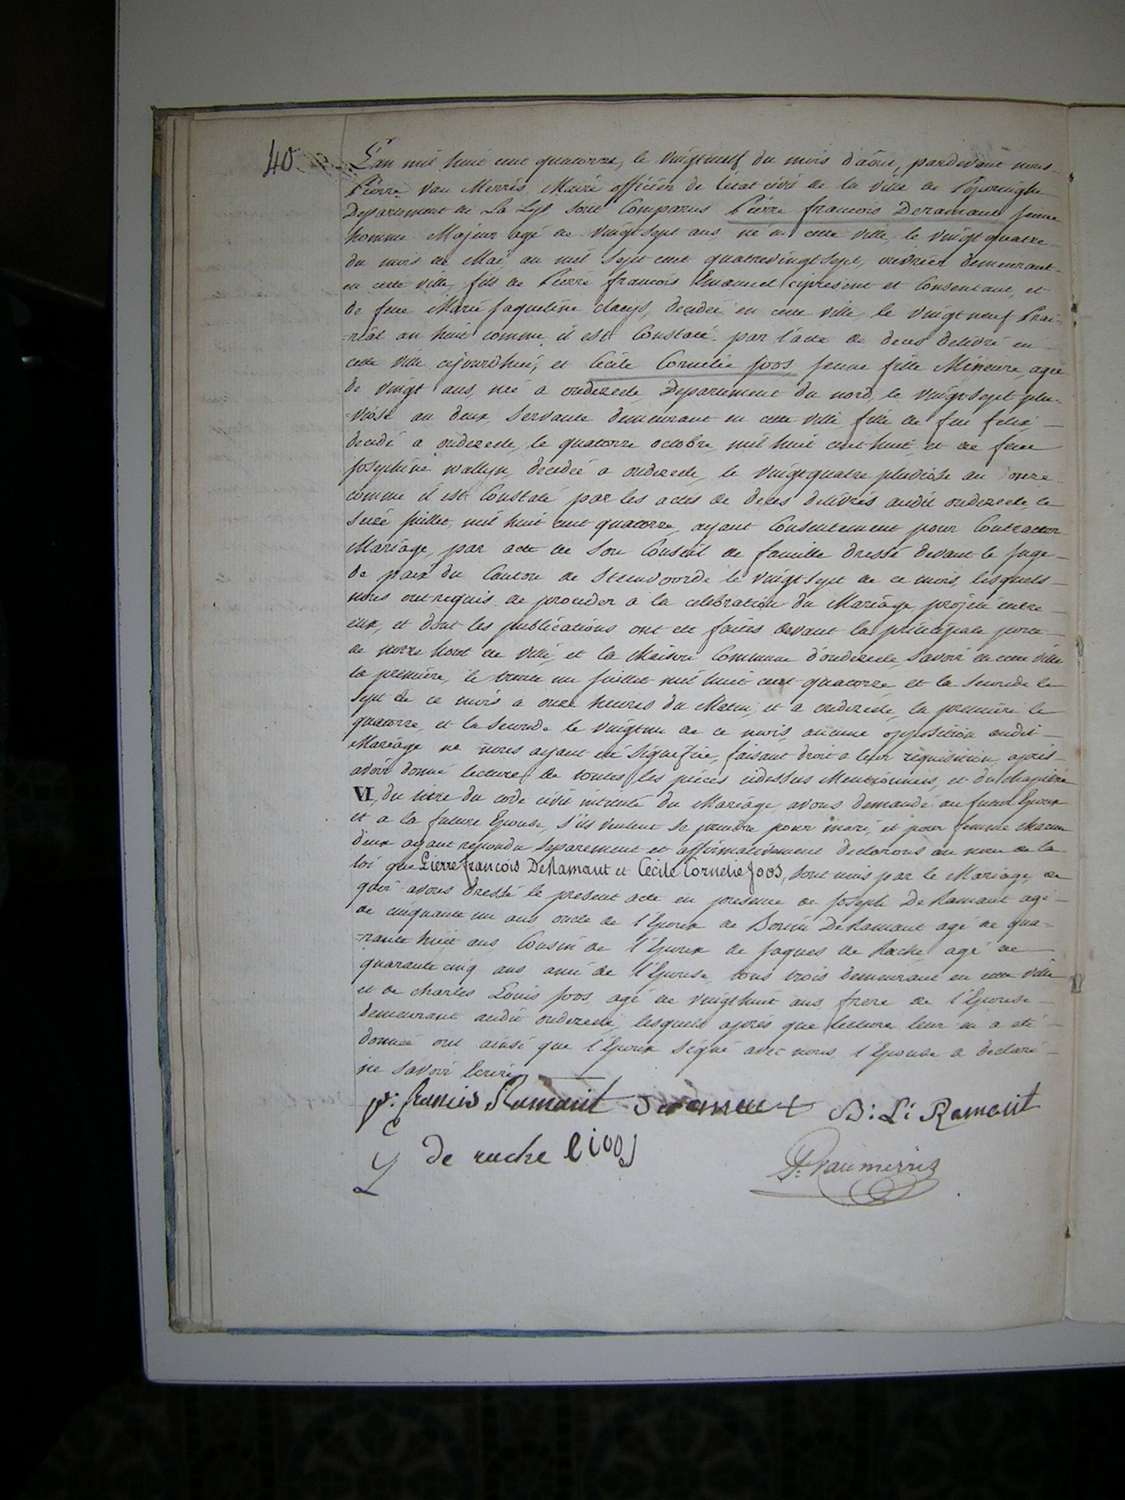 40.
L'an mil huit cent quatorze, le vingtneuf du mois d'aôut, pardevant nous
Pierre van Merris, Maire officier de l'etat civil de la ville de Poperinghe
Departement de La Lys sont Comparus Pierre francois Deramaut jeune
homme Majeur agé de vingtsept ans né en cette ville, le vingtquatre
du mois de Mai an mil sept cent quatrevingtsept, ouvrier demeurant
en cette ville, fils de Pierre francois Emanuel ci present et Consentant, et
de feue Marie Jaqueline claeys, decedée en cette ville le vingtneuf Prai-
-rial an huit comme il est Constaté par l'acte de deces delivré en
cette ville cejourdhui, et Cecile Cornelie Joos jeune fille Mineure, agée
de vingt ans, née a oudezeele Departement du nord, le vingtsept plu-
-viose an deux servante demeurant en cette ville fille de feu felix
decedé a oudezeele, le quattorze octobre mil huit cent huit et de feue
Josephine wallyn, decedée a oudezeele, le vingtquatre pluviose an onze
comme il est Constaté par les actes de deces delivrés audit oudezeele le
seize juillet mil huit cent quatorze, ayant Consentement pour Contracter
Mariage, par acte de son Conseil de famille dressé devant le juge
de paix du Canton de Steenvoorde le vingtsept de ce mois, lesquels
nous ont requis de proceder a la celebration du Mariage projeté entre
eux, et dont les publications ont eté faites devant la principale porte
de notre hotel de ville, et la Maison Commune d'oudezeele, savoir en cette ville
la premiere, le trente un juillet mil huit cent quatorze et la seconde le
sept de ce mois a onze heures du Matin, et a oudezeele, la premiere le
quatorze, et la seconde le vingtun de ce mois, aucune opposition audit
Mariage ne nous ayant eté signifiée, faisant droit a leur requisition, apres
avoir donné lecture de toutes les pieces cidessus Mentionnées, et du chapitre
VI, du titre du code civil intitulé du Mariage avons demandé au futur Epoux
et a la future Epouse, s'ils veulent se prendre pour mari, et pour femme chacun
d'eux ayant repondu separement et affirmativement declarons au nom de la
loi que Pierre francois DeRamaut et Cecile Cornelie Joos, sont unis par le Mariage, de
quoi avons dressé le present acte en presence de Joseph DeRamaut agé
de cinquante un ans oncle de l'Epoux de DeRamaut agé de qua-
-rante huit ans, Cousin de l'Epoux de Jaques de Rache agé de
quarante cinq ans, ami de l'Epouse, tous trois demeurant en cette ville
et de Charles Louis Joos agé de vingthuit ans frere de l'Epouse
demeurant audit oudezeele, lesquels apres que lecture leur en a eté
donnée ont ainsi que l'Epoux signé avec nous, l'Epouse a declaré
ne savoir Ecrire
p: francis Ramaut B: L: Ramaut
de rache C joos
P: Vanmerris